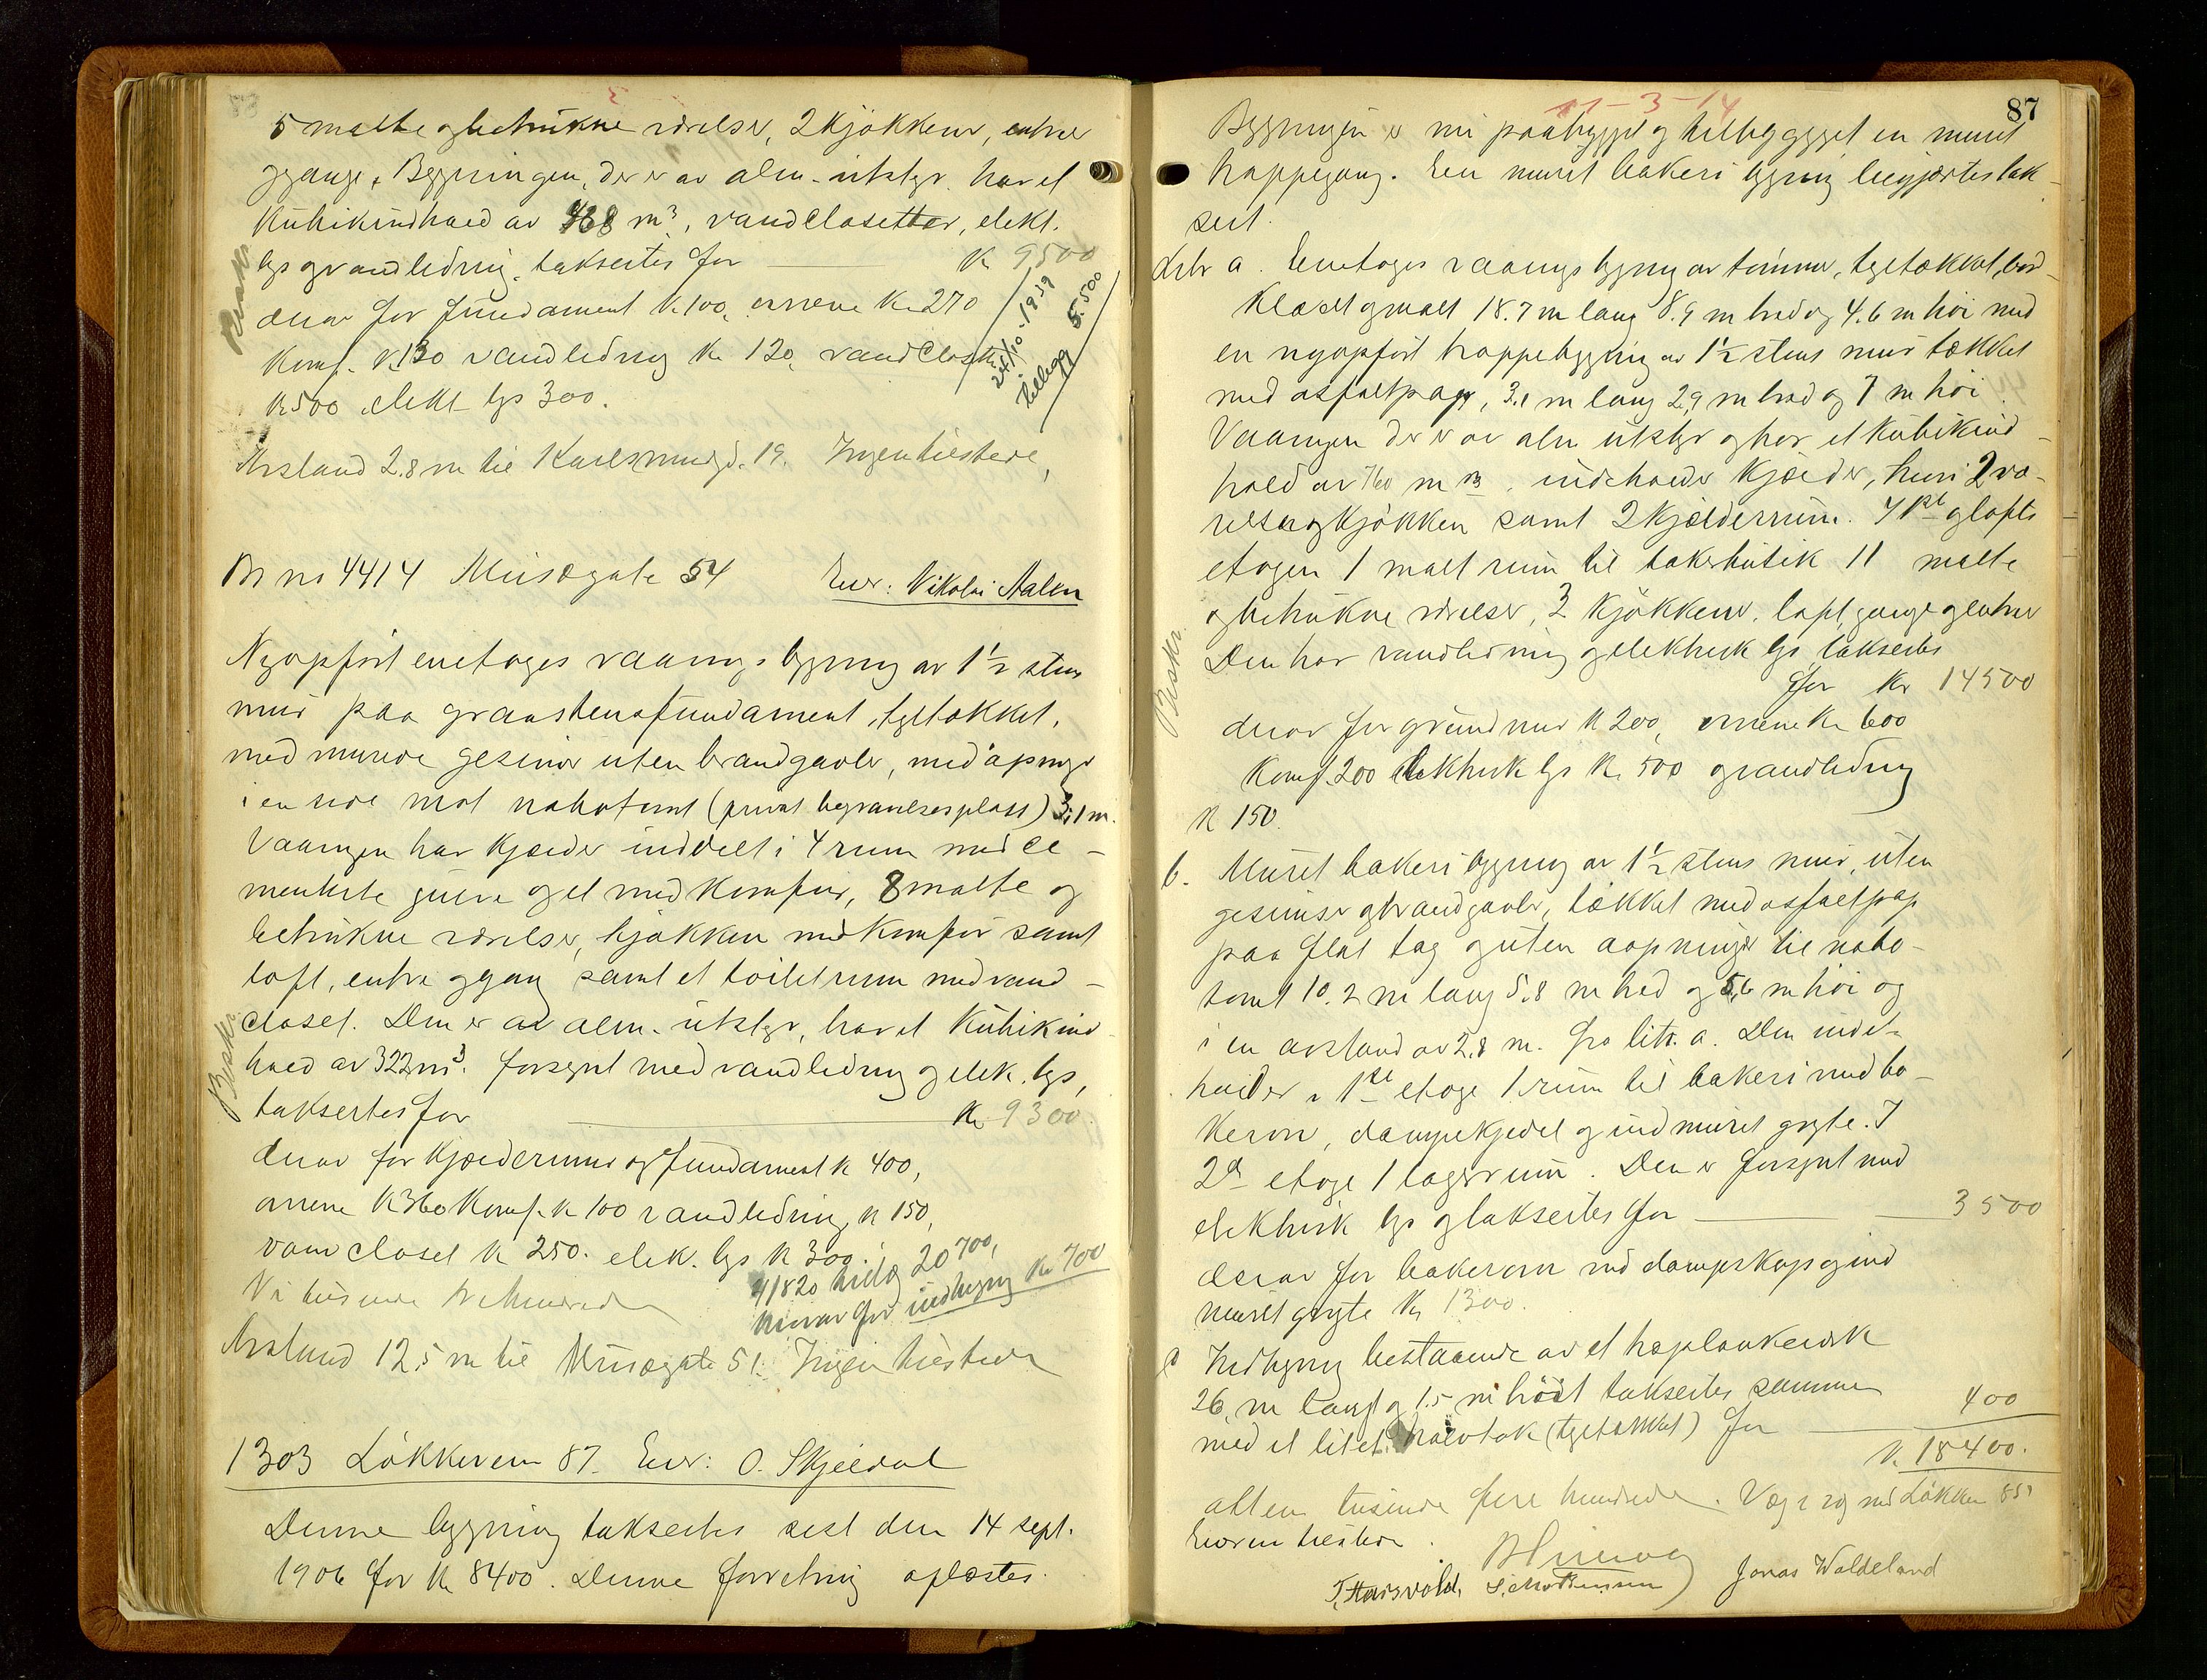 5 malte og betrukne værelser, 2 kjøkkener, entreer
og gange. Bygningen, der er av alm. utstyr, har et
Kubikindhold av 468 m³, vandclosetter, elekt.
lys og vandledning, taksertes for K 9500
derav for fundament K. 100, ovnene Kr. 270
Komf. K. 130 vandledning Kr 120, vandclosetter
K 500 elekt. lys 300.
24/10-1939
tillegg
5.500
Beskr.
Avstand 2.8 m til Karlsmindegd. 19. Ingen ildsted
Br. no 4414 Musegate 54 Eier: Nikolai Aalen
Nyopført enetages vaanings bygning av 1½ stens
mur paa graastensfundament, tgltækket,
med murede gesimser uten brandgavler, med åpninger
i en side mot nabotomt (privat begravelsesplass) 3.1 m.
Vaaningen har kjælder inddelt i 4 rum med ce-
menterte gulve og et med komfur, 8 malte og
betrukne værelser, kjøkken med komfur samt
loft, entre og gang samt et toiletrum med vand-
closet. Den er av alm. utstyr, har et Kubikind-
hold av 322 m³. forsynt med vandledning og elek. lys,
taksertes for Kr. 9300
Beskr.
derav for kjælderrum og fundament K 400,
ovnene K 360 Komf. K 100 vandledning K 150,
vandcloset K 250. elek. lys K 300.
Ni tusinde trehundrede
4/1820 tillæg 20700,
hvorav for indhegn. Kr 700
Avstand 12.5 m til Musegate 51. Ingen ildsteder
1303 Løkkeveien 87. Eier: O. Skjeldal
Denne bygning taksertes sist den 14 sept.
1906 for Kr 8400. Denne forretning oplæstes.
11-3-14
87
Bygningen er nu paabygget og tilbygget en muret
trappegang. En muret bakeri bygning begjærtes tak-
sert.
Litr a. Enetages vaanings bygning av tømmer, tgltækket, bord-
klædt og malt 18.7 m lang 8.9 m bred og 4.6 m høi med
en nyopført trappebygning av 1½ stens mur tækket
med asfaltpap, 3.1 m lang 2.9 m bred og 7 m høi.
Vaaningen der er av alm utstyr og har et Kubikind-
hold av 760 m³, indeholder kjælder, hvori 2 væ-
relser og kjøkken samt 2 kjælderrum. I 1ste og lofts
etagen 1 malt rum til bakerbutik 11 malte
og betrukne værelser, 3 kjøkkener, loft, gange og entreer
Den har vandledning og elektrisk lys taksertes
for Kr 14500
Beskr.
derav for grundmur K 200, ovnene Kr 600
Komf. 200 elektrisk lys Kr. 500 og vandledning
K 150.
b. Muret bakeri bygning av 1½ stens mur, uten
gesimser og brandgavler, tækket med asfaltpap
paa flat tag og uten aapninger til nabo-
tomt 10.2 m lang 5.8 m bred og 5.6 m høi og
i en avstand av 2.8 m. fra litr. a. Den inde-
holder i 1ste etage 1 rum til bakeri med ba-
kerovn, dampkjedel og indmuret gryte. I
2d etage 1 lagerrum. Den er forsynt med
elektrisk lys og taksertes for 3500
derav for bakerovn med dampskap og ind
muret gryte Kr 1300.
c Indhegning bestaaende av et træplankeværk
26, m langt og 1.5 m høit taksertes sammen 400
med et litet halvtak (tgltækket) for
K. 18400.
atten tusinde fire hundrede. Væg i væg med Løkkev 85
Eieren tilstede.
T. Haarsvold, S. Mortensen Jonas Waldeland